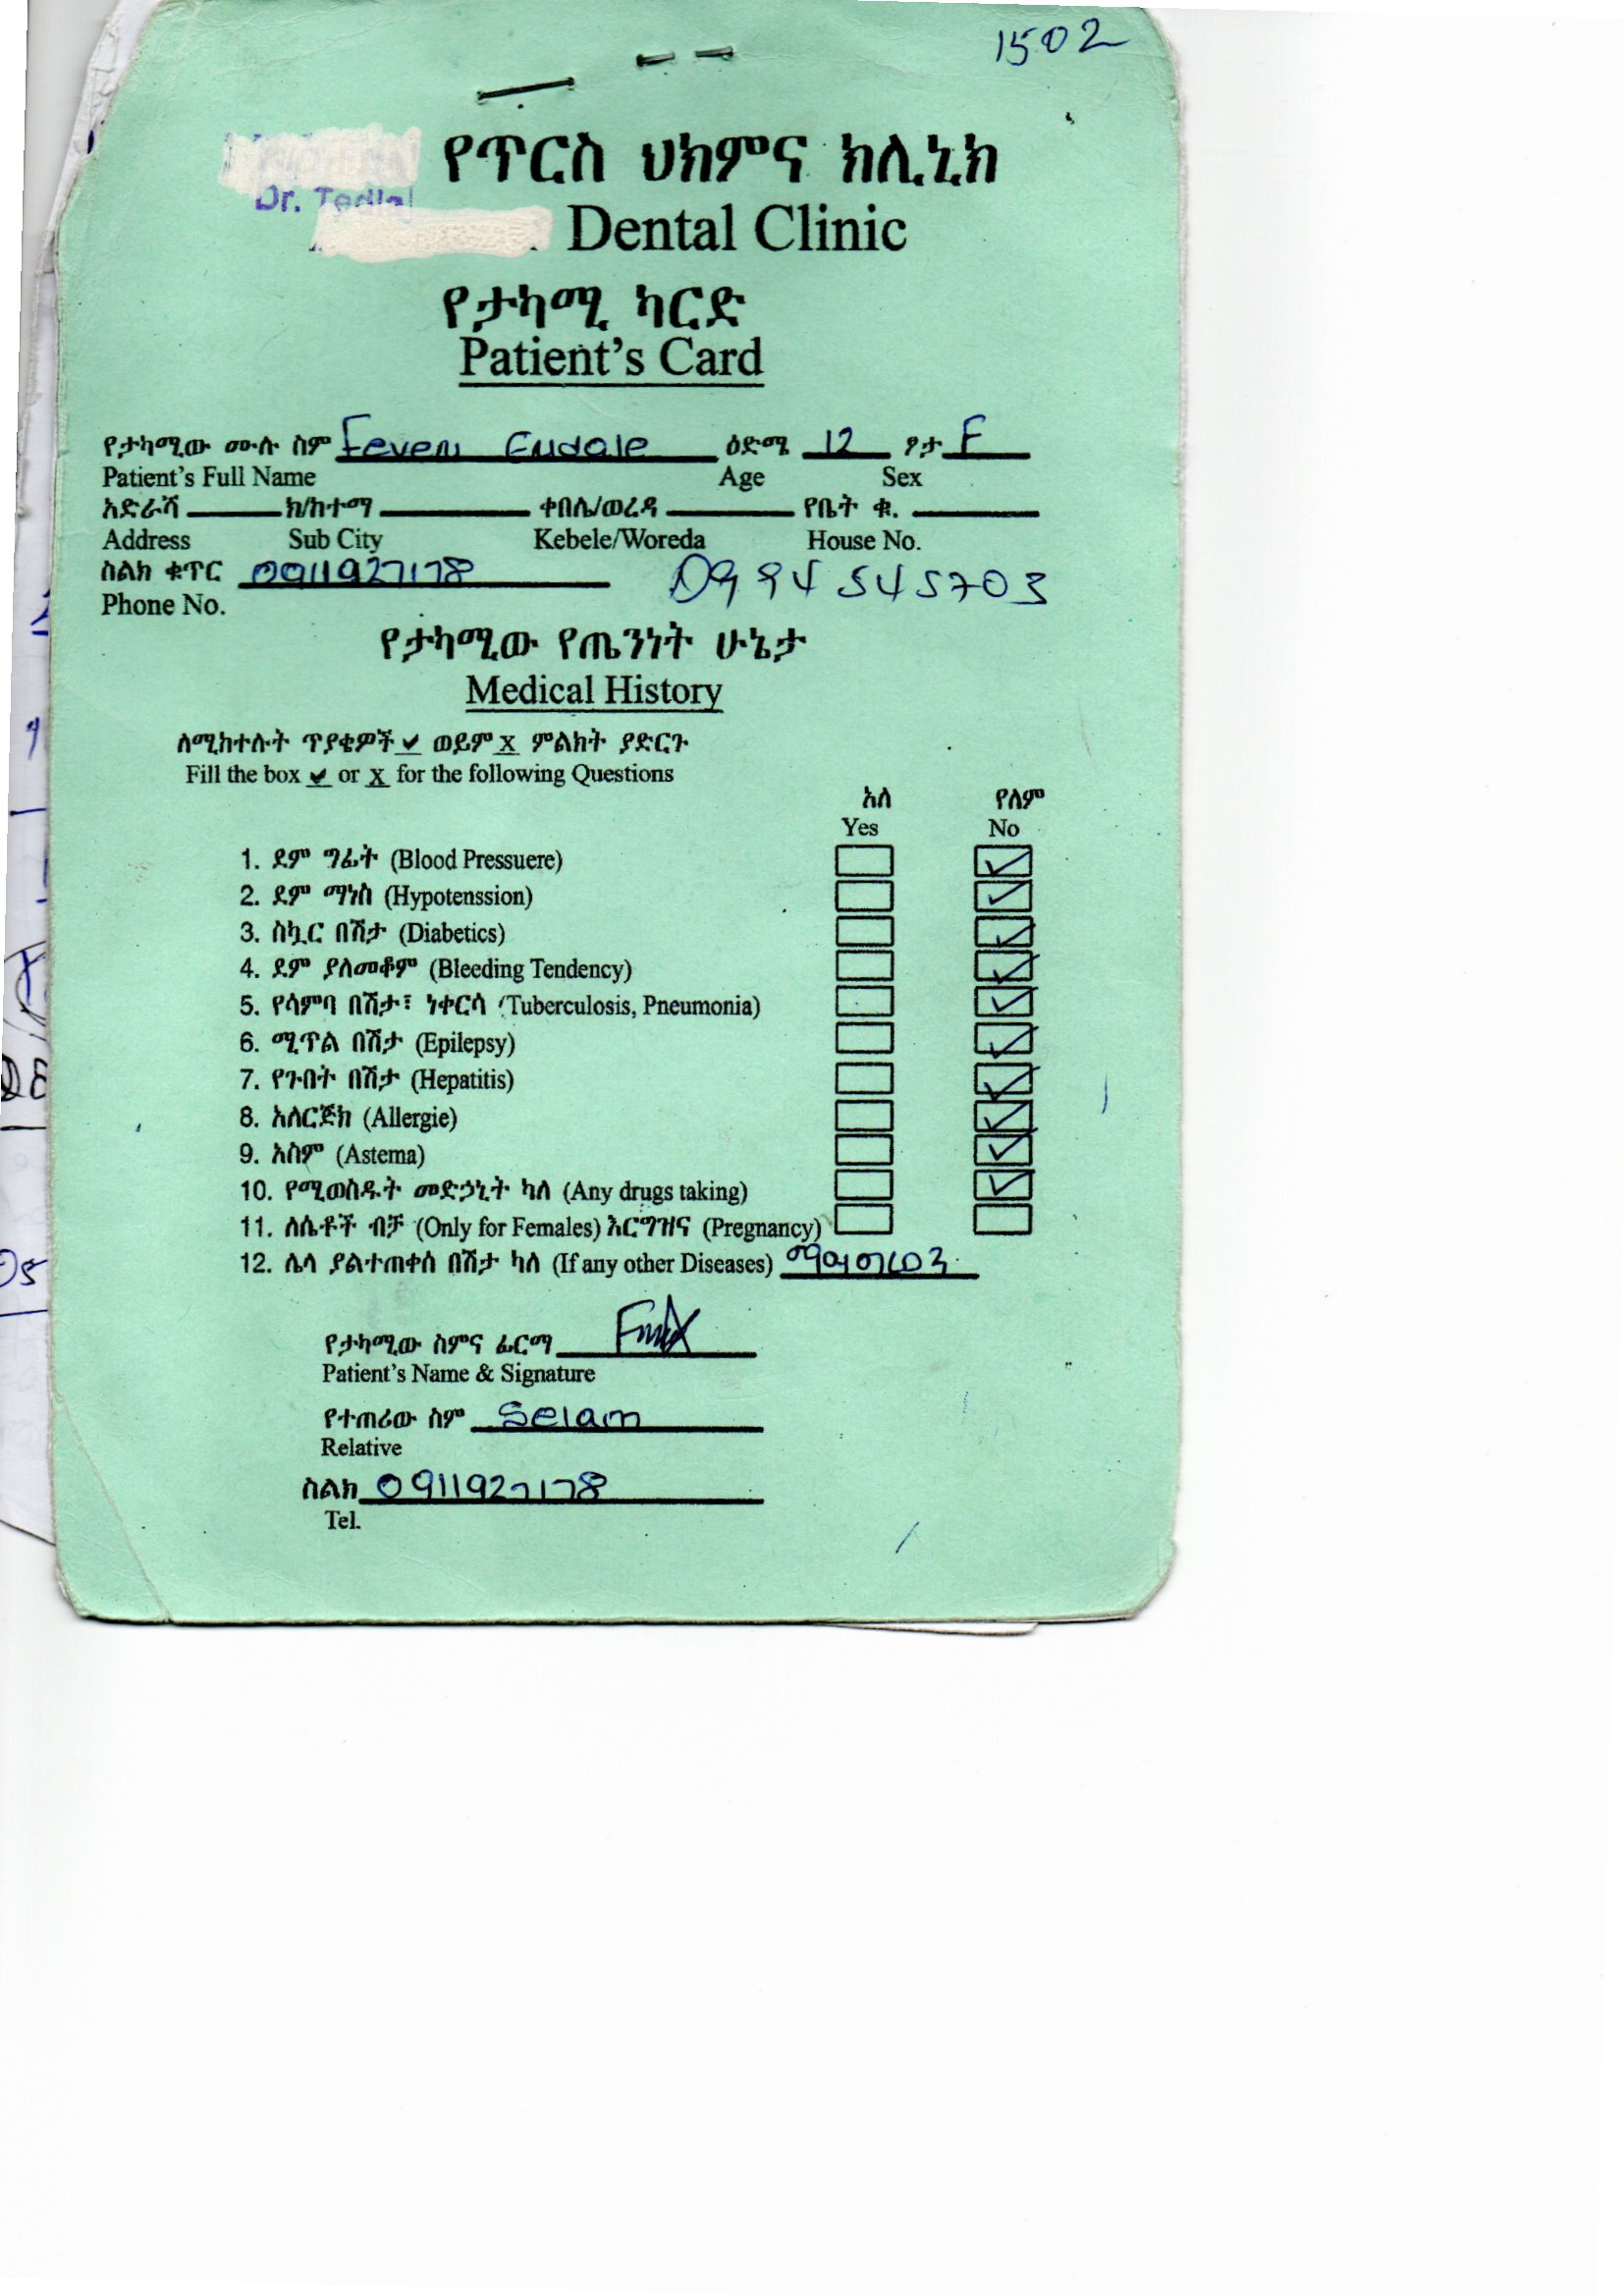 1502
የጥርስ ህክምና ክሊኒክ
Dr. Tadla
Dental Clinic
የታካሚ ካርድ
Patient's Card
የታካሚው ሙሉ ስም Feven Endale ዕድሜ 12 ፆታ F
Patient's Full Name Age Sex
አድራሻ ክ/ከተማ ቀበሌ/ወረዳ የቤት ቁ.
Address Sub City Kebele/Woreda House No.
ስልክ ቁጥር 0911927178 0994545703
Phone No.
የታካሚው የጤንነት ሁኔታ
Medical History
ለሚከተሉት ጥያቄዎች ✓ ወይም x ምልክት ያድርጉ
Fill the box ✓ or X for the following Questions
አለ የለም
Yes No
1. ደም ግፊት (Blood Pressuere) ✓
2. ደም ማነስ (Hypotenssion) ✓
3. ስኳር በሽታ (Diabetics) ✓
4. ደም ያለመቆም (Bleeding Tendency) ✓
5. የሳምባ በሽታ፣ ነቀርሳ (Tuberculosis, Pneumonia) ✓
6. ሚጥል በሽታ (Epilepsy) ✓
7. የጉበት በሽታ (Hepatitis) ✓
8. አለርጅክ (Allergie) ✓
9. አስም (Astema) ✓
10. የሚወስዱት መድኃኒት ካለ (Any drugs taking) ✓
11. ለሴቶች ብቻ (Only for Females) እርግዝና (Pregnancy)
12. ሌላ ያልተጠቀሰ በሽታ ካለ (If any other Diseases)
የታካሚው ስምና ፊርማ
Patient's Name & Signature
የተጠሪው ስም Selam
Relative
ስልክ 0911927178
Tel.